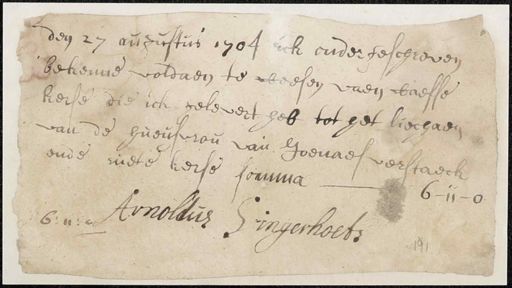 den 27 augustus 1704 ick onder geschreven
bekenne voldaen te weesen van wasse
kerse die ick gelevert heb tot het liechaem
van de hueisvrou van Joenaes verstaeck
ende suete kerse somma 6-ii-0
6:ii:0 Arnoldus Gingerhoets
191